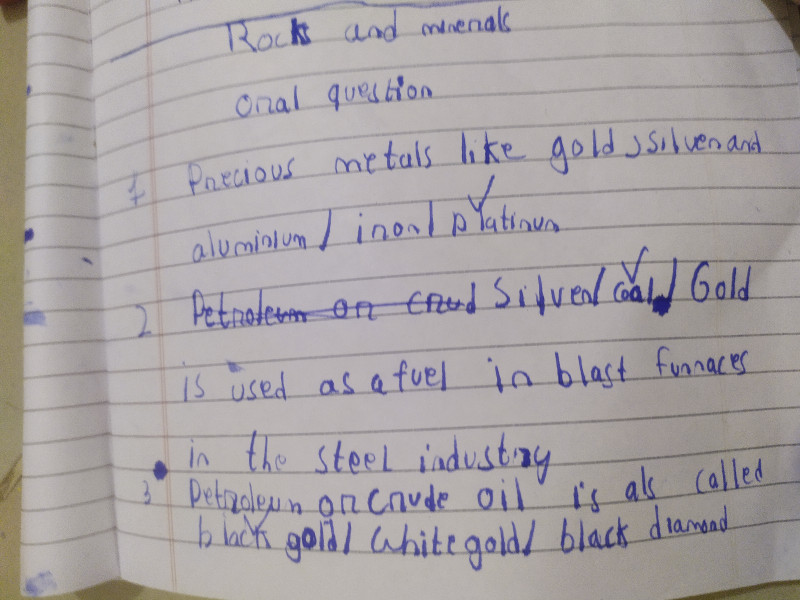 Rocks and minerals
oral question
1 Precious metals like gold, silver and
aluminium / iron / platinum
2 Petroleum or crud Silver / coal / Gold
is used as a fuel in blast furnaces
in the steel industry
3 Petroleum or crude oil is als called
black gold / white gold / black diamond